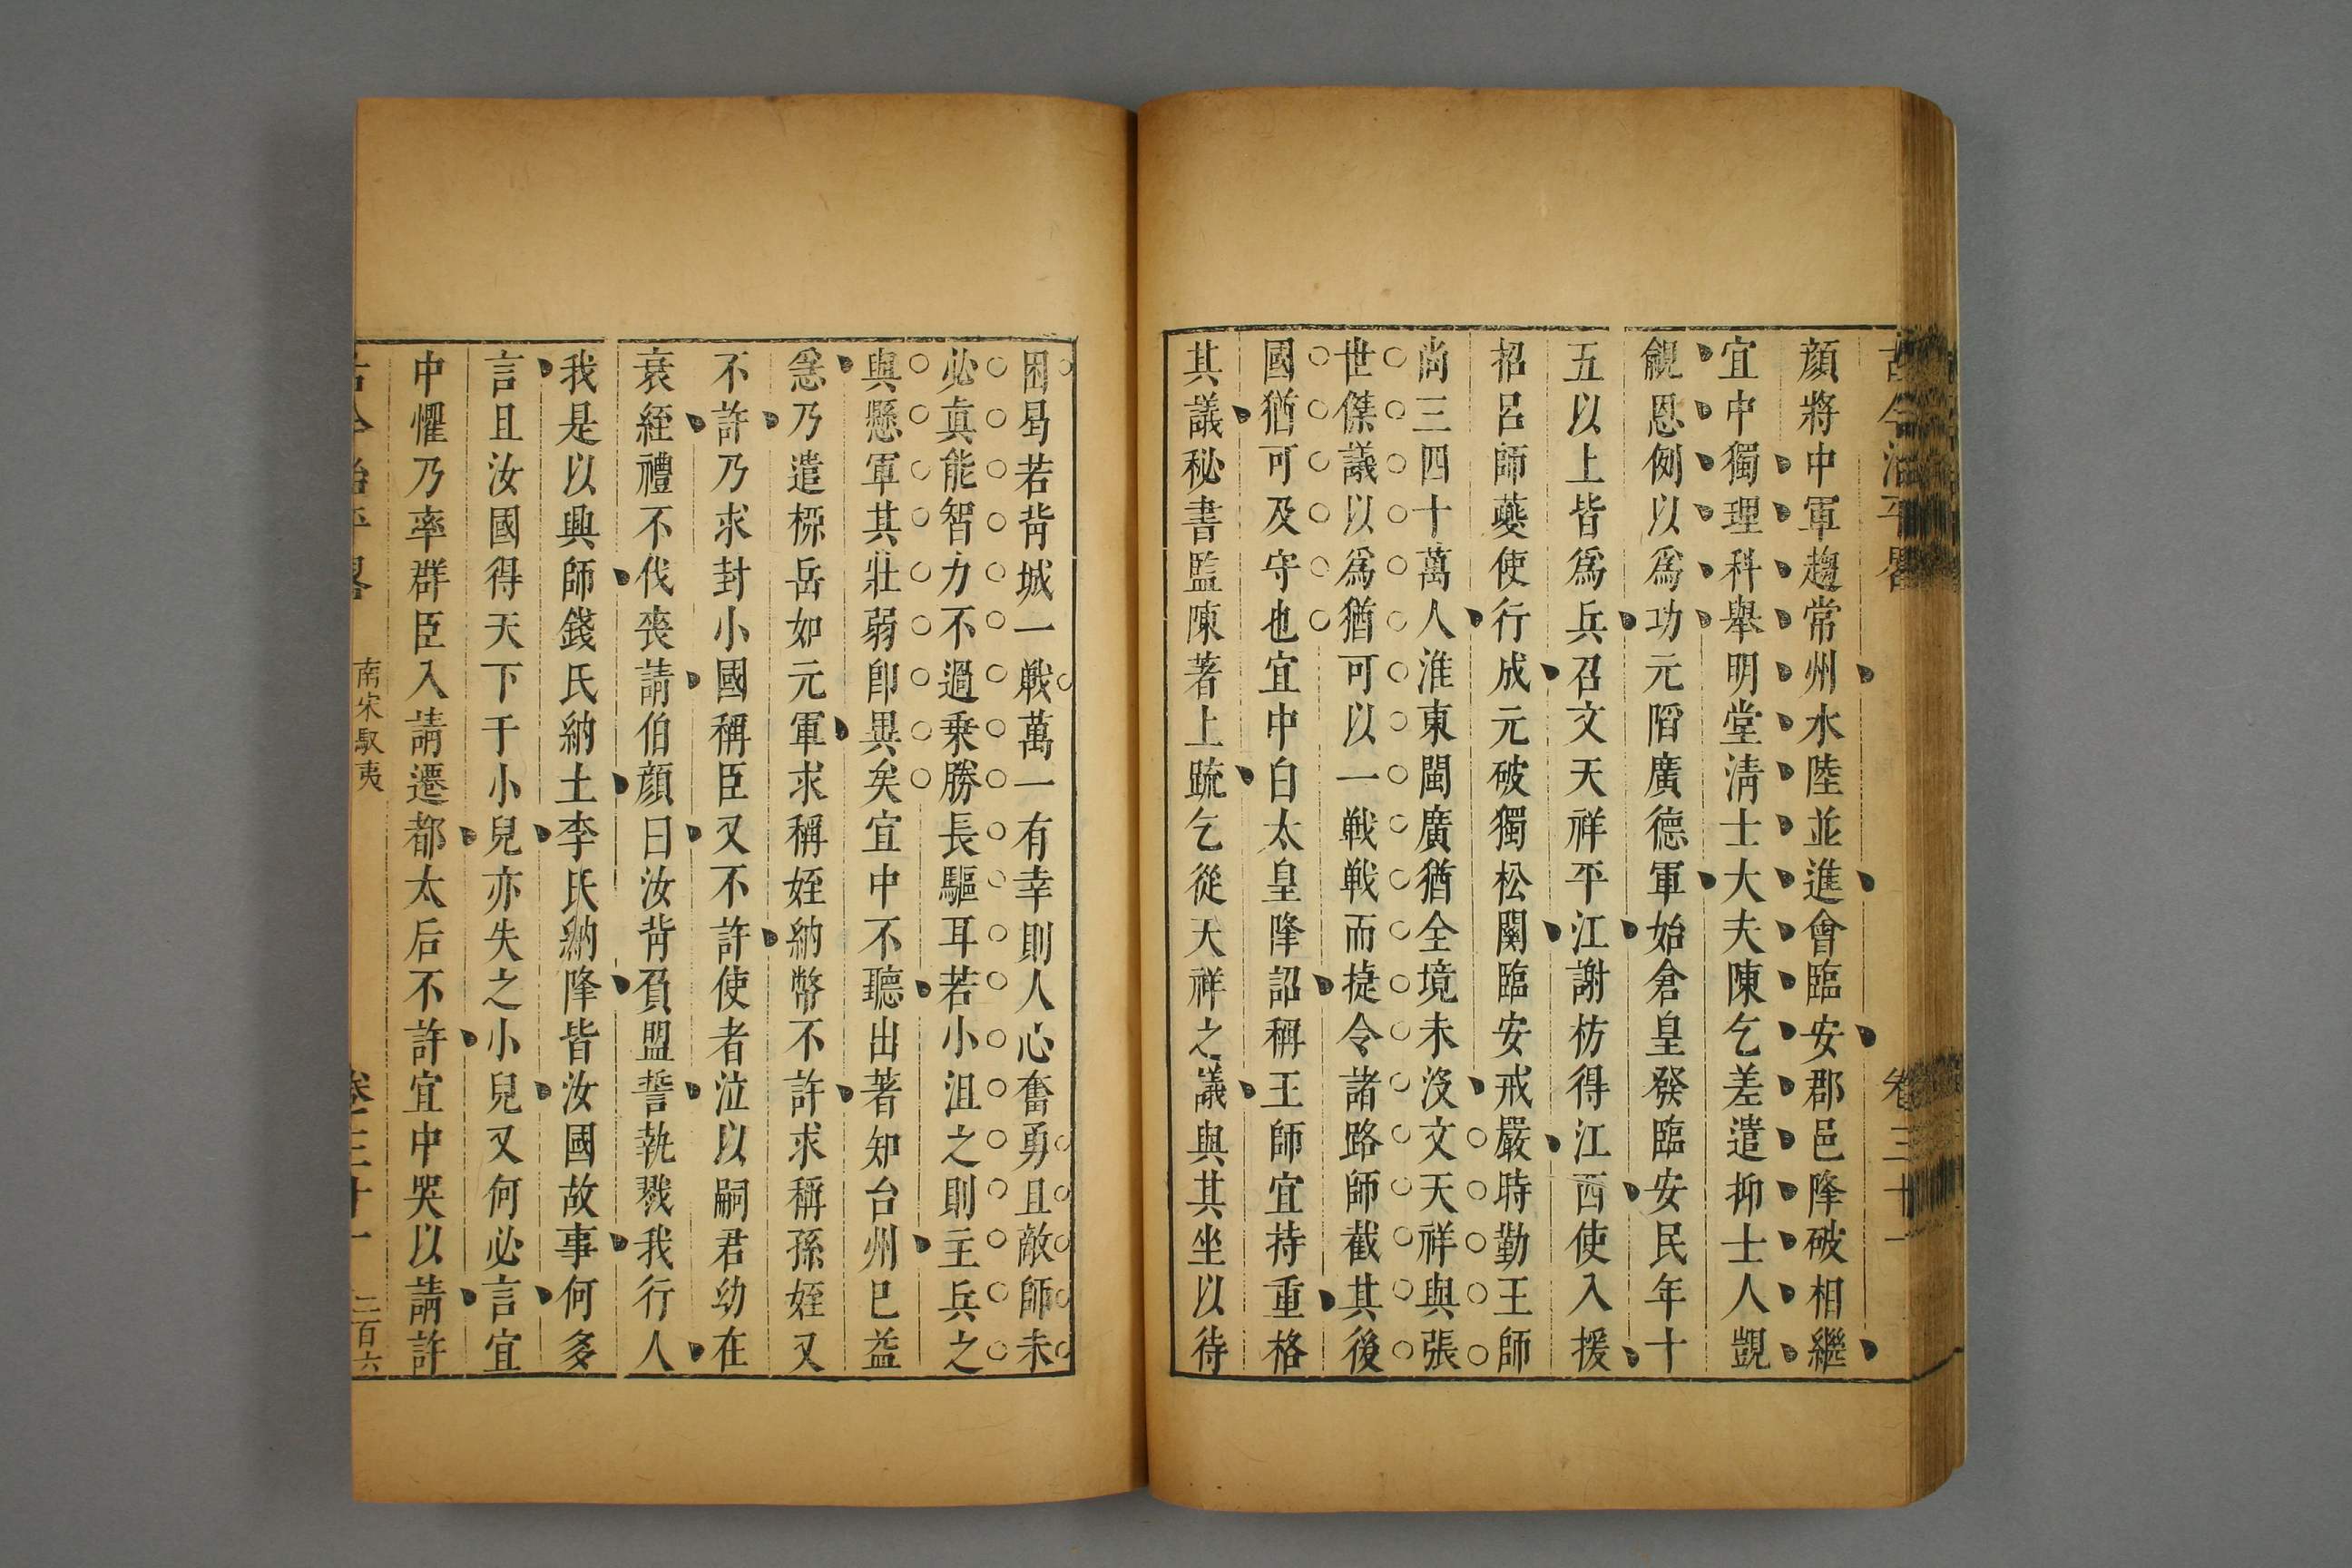 古今治平畧 卷三十一
顔將中軍趨常州水陸並進會臨安郡邑降破相繼
宜中獨理科舉明堂清士大夫陳乞差遣抑士人覬
覦恩例以爲功元陷廣德軍始倉皇發臨安民年十
五以上皆爲兵召文天祥平江謝枋得江西使入援
招呂師䕫使行成元破獨松關臨安戒嚴時勤王師
尚三四十萬人淮東閩廣猶全境未沒文天祥與張
世傑議以爲猶可以一戰戰而捷令諸路師截其後
國猶可及守也宜中白太皇降詔稱王師宜持重格
其議秘書監陳著上疏乞從天祥之議與其坐以待
困曷若背城一戰萬一有幸則人心奮勇且敵師未
必眞能智力不過乗勝長驅耳若小沮之則主兵之
與懸軍其壯弱卽異矣宜中不聽出著知台州巳益
急乃遣柳岳如元軍求稱姪納幣不許求稱孫姪又
不許乃求封小國稱臣又不許使者泣以嗣君幼在
衰絰禮不伐喪請伯顔曰汝背負盟誓執戮我行人
我是以興師錢氏納土李氏納降皆汝國故事何多
言且汝國得天下于小兒亦失之小兒又何必言宜
中懼乃率群臣入請遷都太后不許宜中哭以請許
古今治平畧 南宋馭夷 卷三十一 二百六